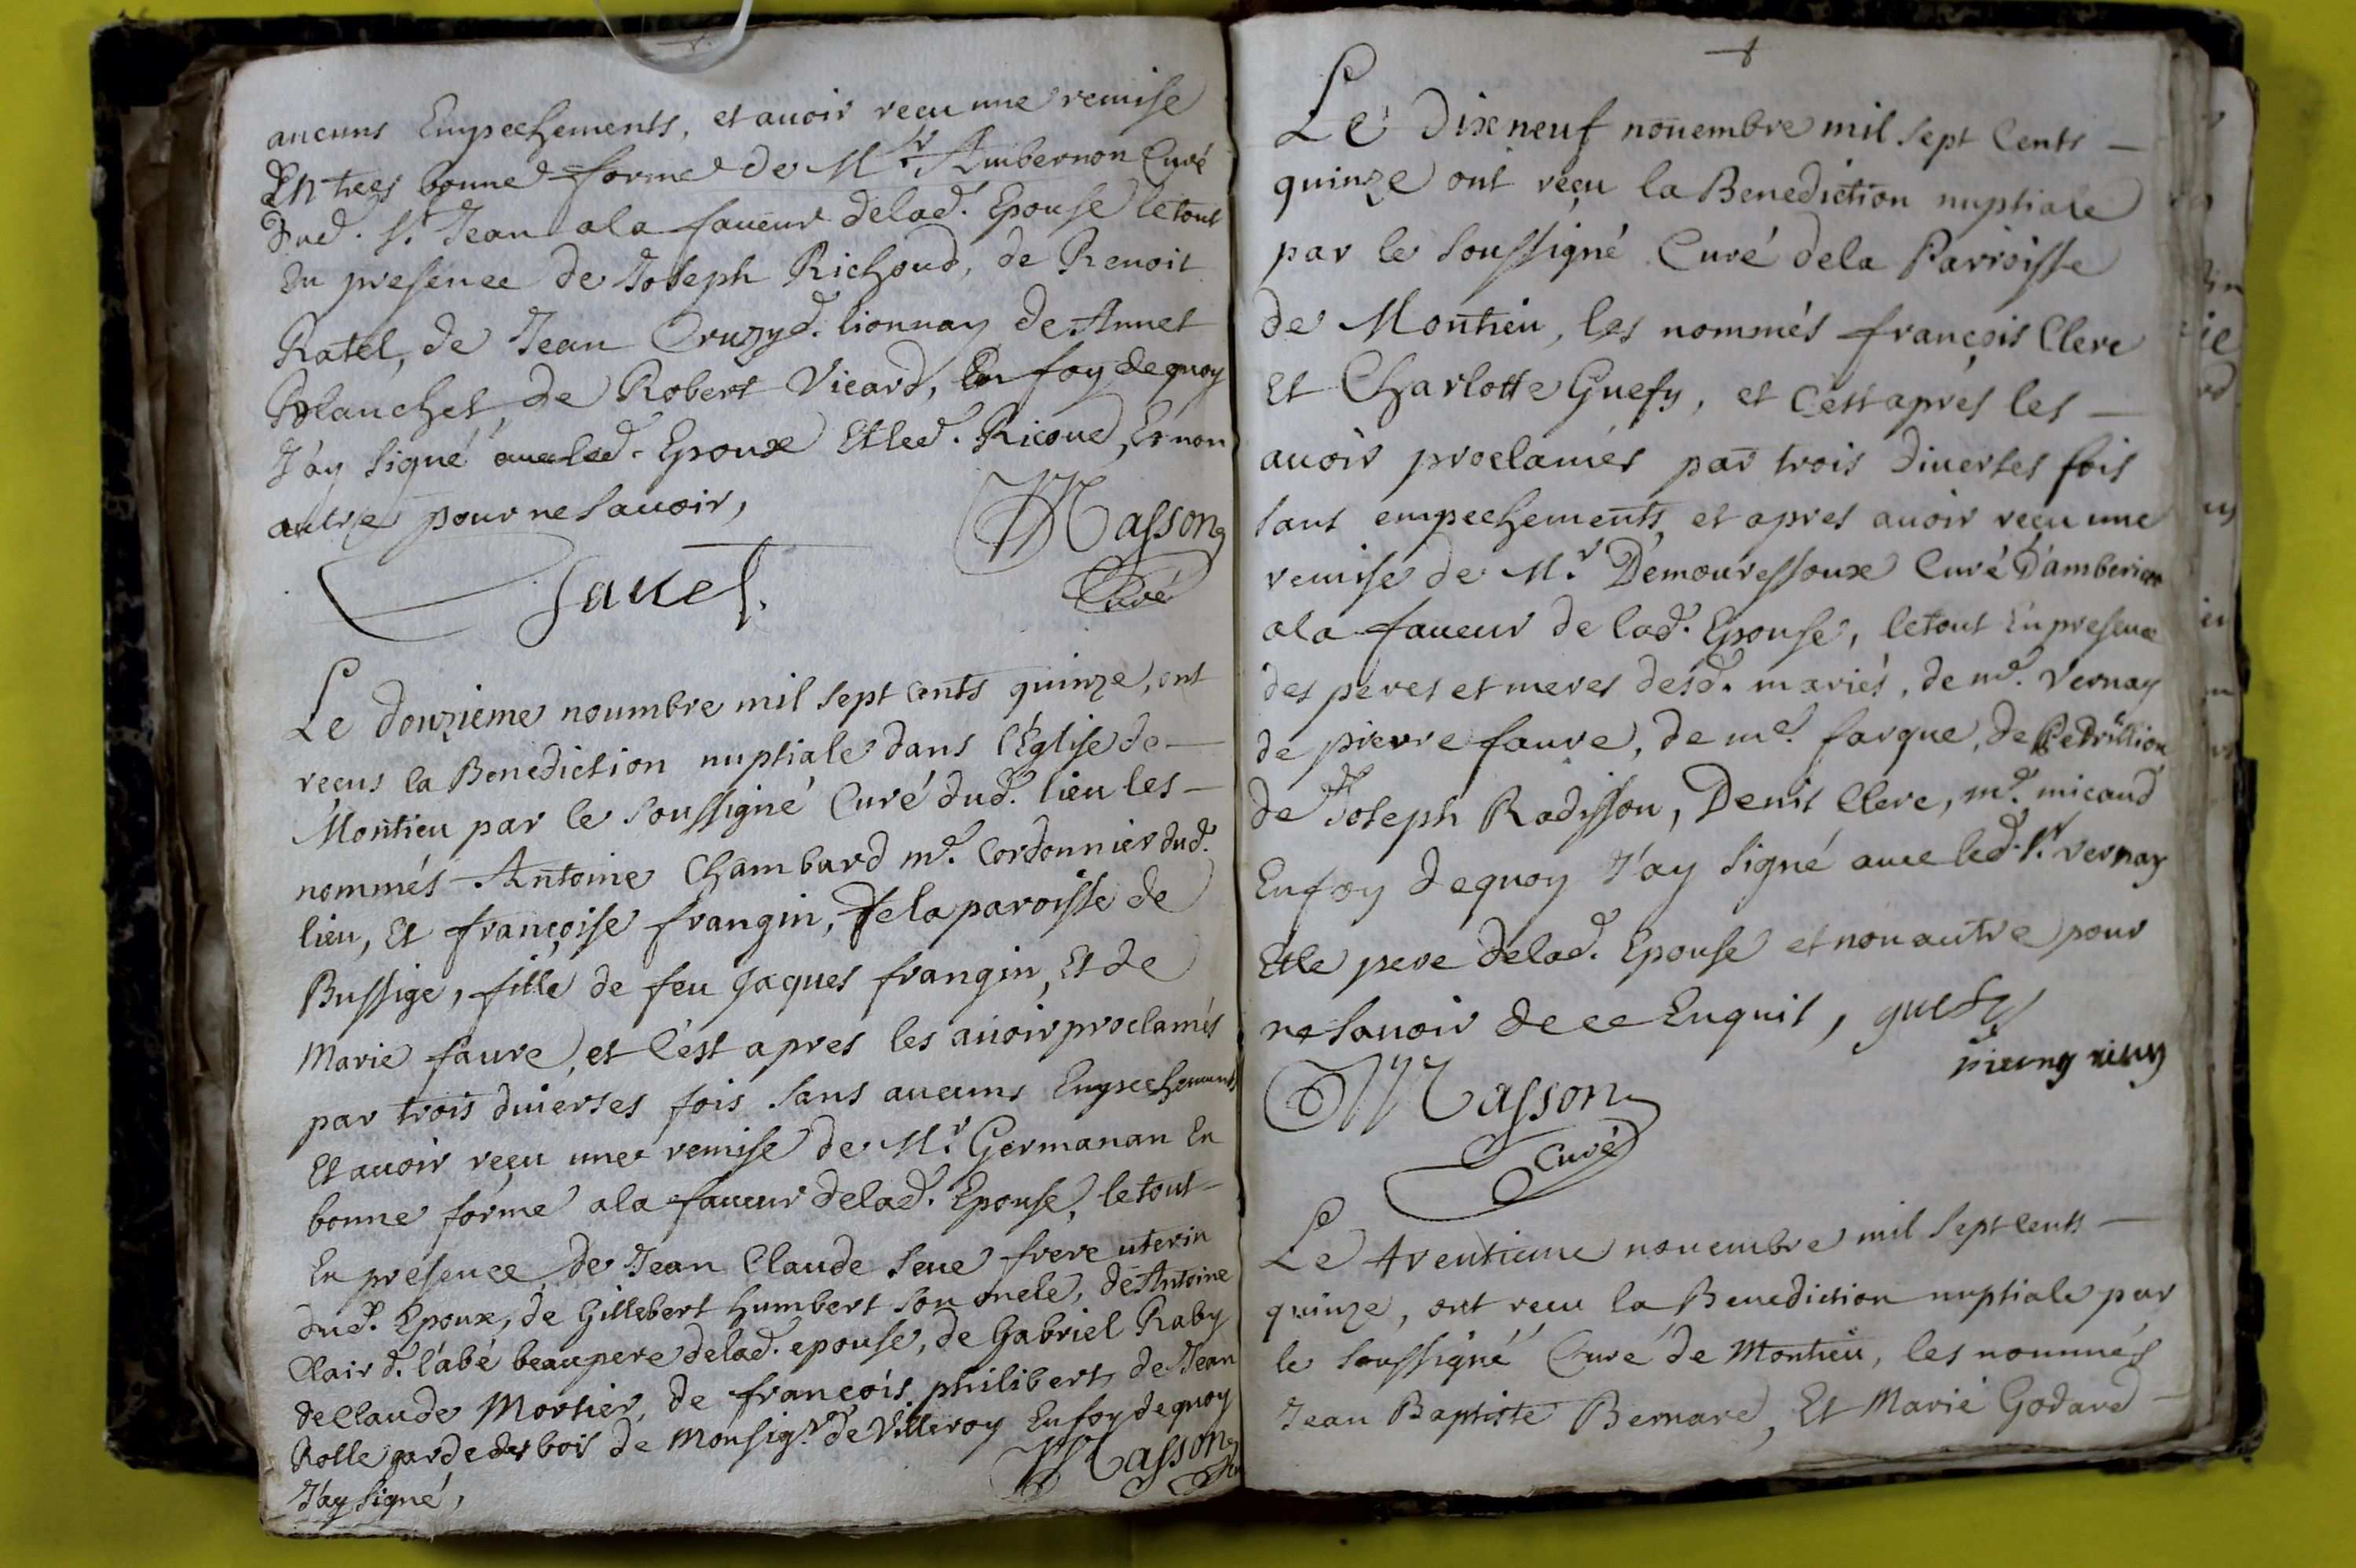 aucuns Empechements, et auoir reçu une remise
En tres bonne forme de Mr. Aubernon Curé
Dud. St. Jean ala faueur delad. Epouse le tout
En presence de Joseph Richoud, de Benoit
Ratel, de Jean Cruzy d. lionnay de Annet
Planchet, de Robert Vicard, En foy de quoy
J'ay signé auec led. Epoux Et led. Ricoud, Et non
autre pour ne sauoir,
Masson
Curé
Le douzieme nouembre mil sept cents quinze, ont
reçus la Benediction nuptiale dans l'Église de -
Montieu par le soussigné Curé dud. lieu les -
nommés Antoine Chambard md. Cordonnier dud.
lieu, Et françoise frangin, de la paroisse de
Bussige, fille de feu Jaques frangin, Et de
Marie faure, et C'est apres les auoir proclamés
par trois diuerses fois sans aucuns Empechements
Et auoir reçu une remise de Mr. Germanan En
bonne forme ala faueur delad. Epouse, le tout -
En presence de Jean Claude Seue frere uterin
dud. Epoux, de Gillebert humbert son oncle, de Antoine
Clair d. l'abé beaupere delad. epouse, de Gabriel Raby
de Claude Mortier, de françois philibert, de Jean
Rolle garde des bois de Monsigr. de Villeroy En foy de quoy
J'ay signé,
Masson
Le Dixneuf nouembre mil sept Cents -
quinze ont reçu la Benediction nuptiale
par le soussigné Curé dela Parroisse
de Montieu, les nommés françois Clerc
Et Charlotte Guefy, et C'est aprés les -
auoir proclamés par trois diuerses fois
sans empechements, et apres auoir reçu une
remise de Mr. Démouressoux Curé D'amberieu
ala faueur de lad. Epouse, le tout En presence
des peres et meres desd. mariés, de md. Vernay
de pierre faure, de md. farque, de
de Joseph Radisson, Denis Clerc, md. micaud
En foy de quoy J'ay signé auec led. Sr. Vernay
Et le pere delad. Epouse et non autre pour
ne sauoir de ce Enquis, guefy
Masson
Curé
Le trentieme nouembre mil sept cents -
quinze, ont reçu la Benediction nuptiale par
le soussigné Curé de Montieu, les nommés
Jean Baptiste Bernard, Et Marie Godard -